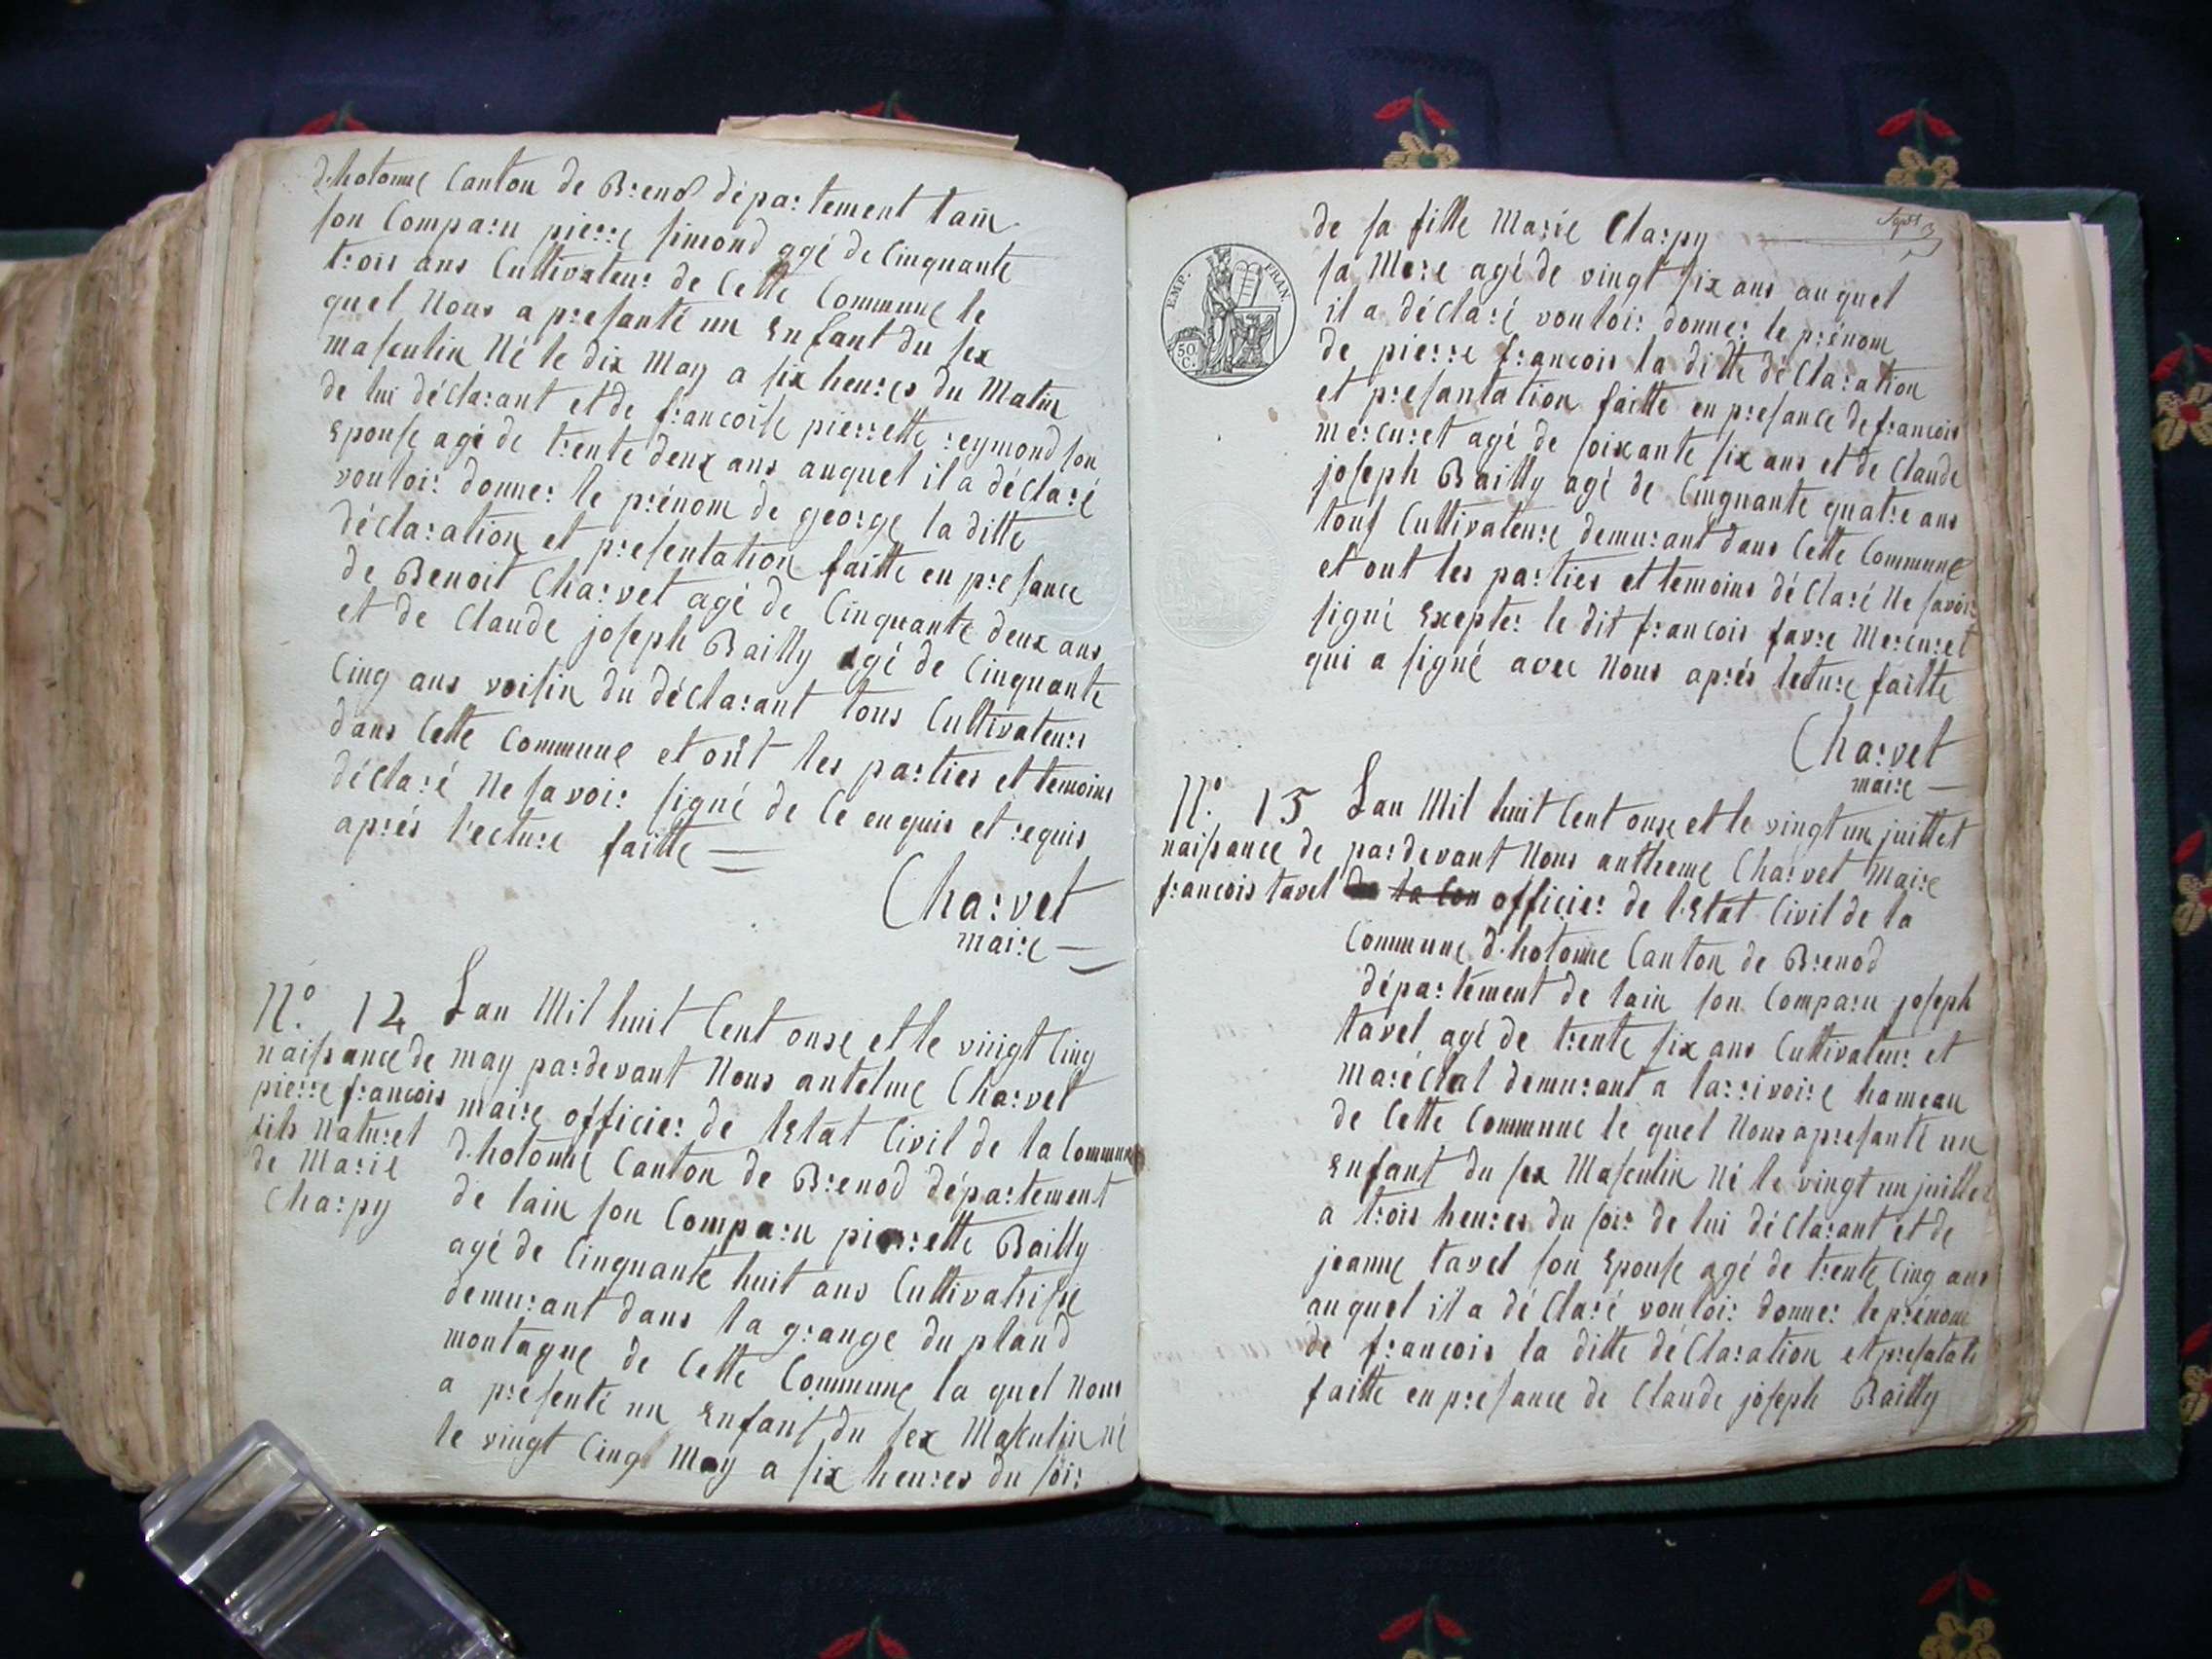 d.hotonne Canton de Brenod département lain
son Comparu pierre simond agé de Cinquante
trois ans Cultivateur de Cette Commune le
quel Nous a presanté un Enfant du sex
masculin Né le dix May a six heures du Matin
de lui déclarant et de francoise pierrette reymond son
Epouse agé de trente deux ans auquel il a déclaré
vouloir donner le prénom de george la ditte
déclaration et presentation faitte en presance
de Benoit Charvet agé de Cinquante deux ans
et de Claude joseph Bailly agé de Cinquante
Cinq ans voisin du déclarant tous Cultivateurs
dans Cette Commune et ont les parties et temoins
déclaré Ne savoir signé de Ce enquis et requis
aprés l'ecture faitte
Charvet
maire
N.° 12 Lan Mil huit Cent onze et le vingt Cinq
naissance de may pardevant Nous antelme Charvet
pierre francois maire officier de lEtat Civil de la Commune
fils Naturel d.hotonne Canton de Brenod département
de Marie de lain son Comparu pierrette Bailly
Charpy agé de Cinquante huit ans Cultivatrisse
demurant dans la grange du pland
montagne de Cette Commune la quel Nous
a présenté un Enfant du sex Masculin né
le vingt Cinq May a six heures du soir
de sa fille Marie Charpy
sa Mere agé de vingt six ans auquel
il a déclaré vouloir donner le prénom
de pierre francois la ditte déclaration
et presantation faitte en presance de francois
mercuret agé de soixante six ans et de Claude
joseph Bailly agé de Cinquante quatre ans
tous Cultivateure demurant dans Cette Commune
et ont les parties et temoins déclaré Ne savoir
signé Exepter le dit francois favre Mercuret
qui a signé avec Nous aprés lecture faitte
EMP. FRAN.
50 C.
Charvet
maire
N.° 13 Lan Mil huit Cent onze et le vingt un juillet
naissance de pardevant Nous antheme Charvet Maire
francois tavel de la Con officier de l.Etat Civil de la
Commune d.hotonne Canton de Brenod
département de lain son Comparu joseph
tavel agé de trente six ans Cultivateur et
maréchal demurant a larrivoire hameau
de Cette Commune le quel Nous apresanté un
Enfant du sex Masculin Né le vingt un juillet
a trois heures du soir de lui déclarant et de
jeanne tavel son Epouse agé de trente Cinq ans
auquel il a déClaré vouloir donner le prénom
de francois la ditte déClaration et presatati
faitte en presance de Claude joseph Bailly